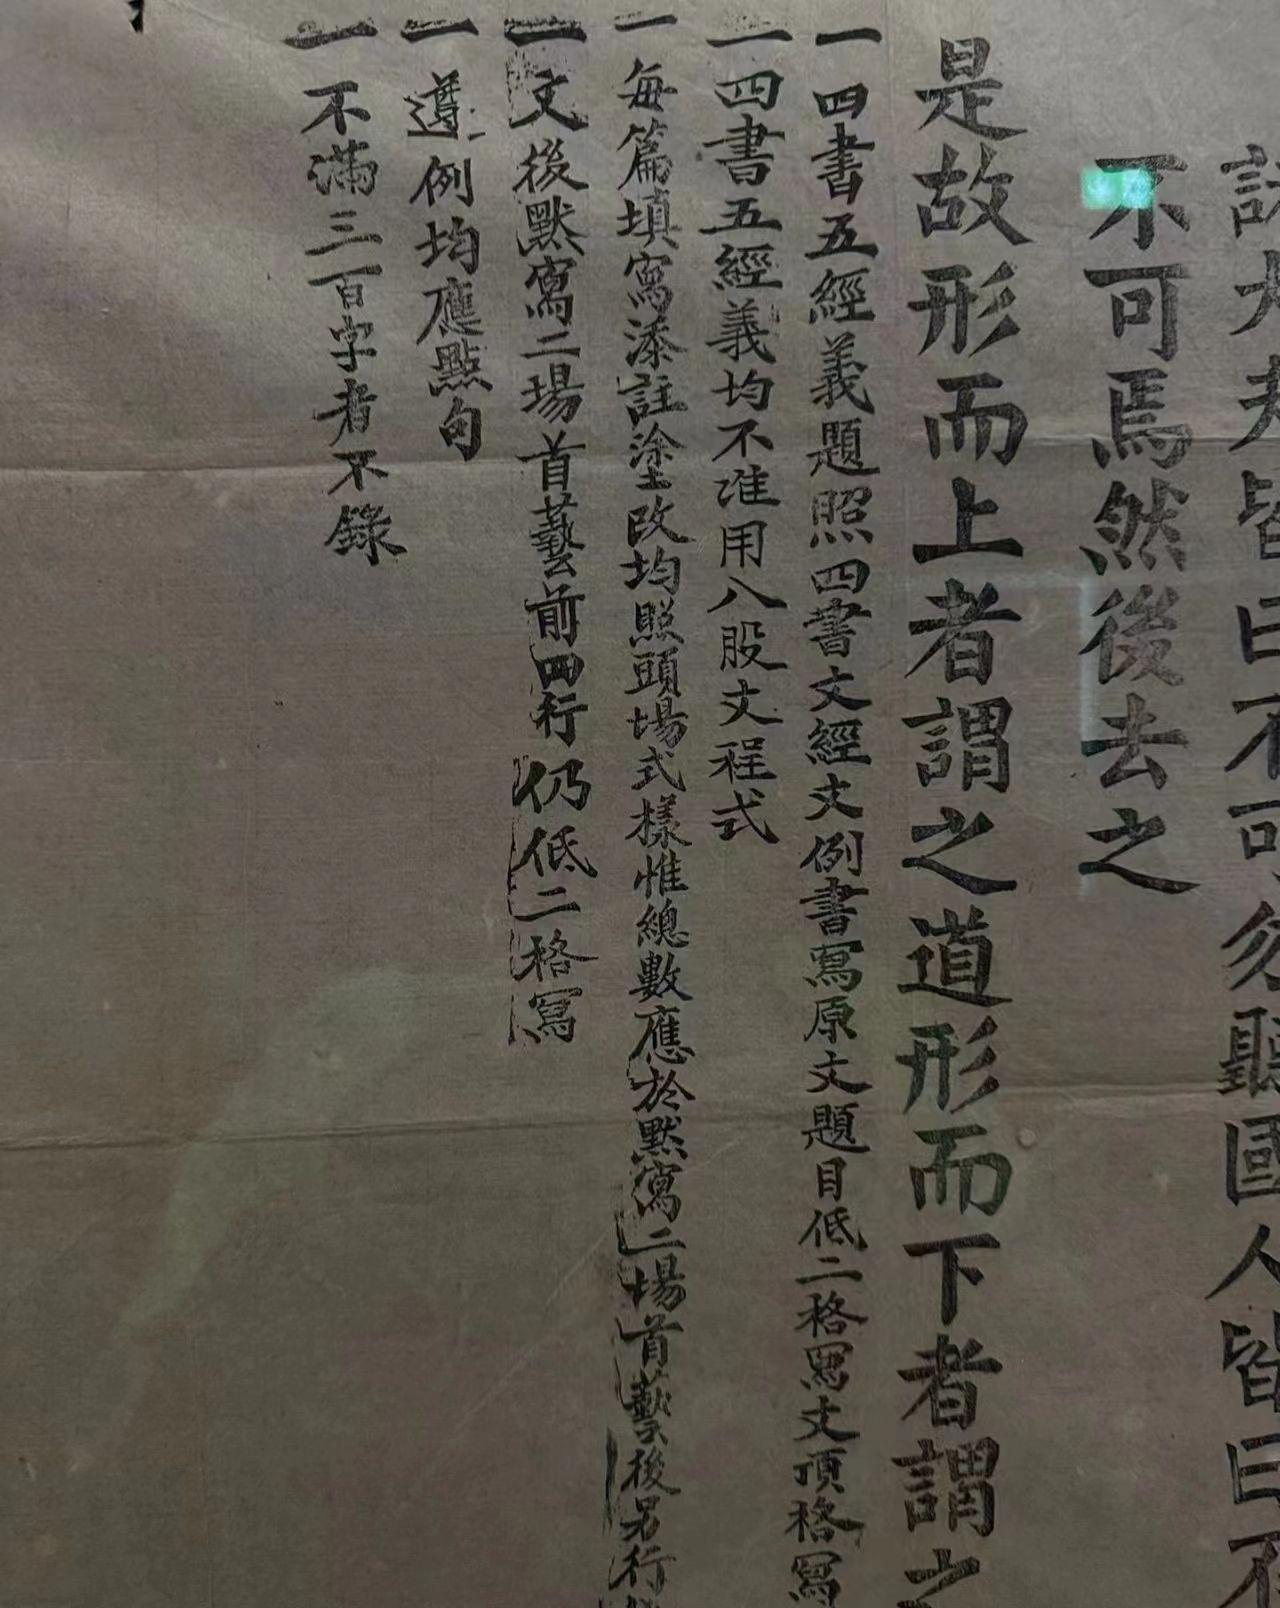 諸大夫皆曰不可勿聽國人皆曰不
不可焉然後去之
是故形而上者謂之道形而下者謂之
一四書五經義題照四書文經文例書寫原文題目低二格寫文頂格寫
一四書五經義均不准用八股文程式
一每篇填寫添註塗改均照頭場式樣惟總數應於默寫二場首藝後另行
一文後默寫二場首藝前四行仍低二格寫
一遵例均應點句
一不滿三百字者不錄